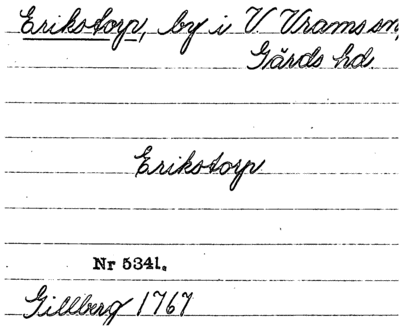 Erikstorp, by i V. Vrams sn,
Gärds hd
Erikstorp
Nr 5341.
Gillberg 1767